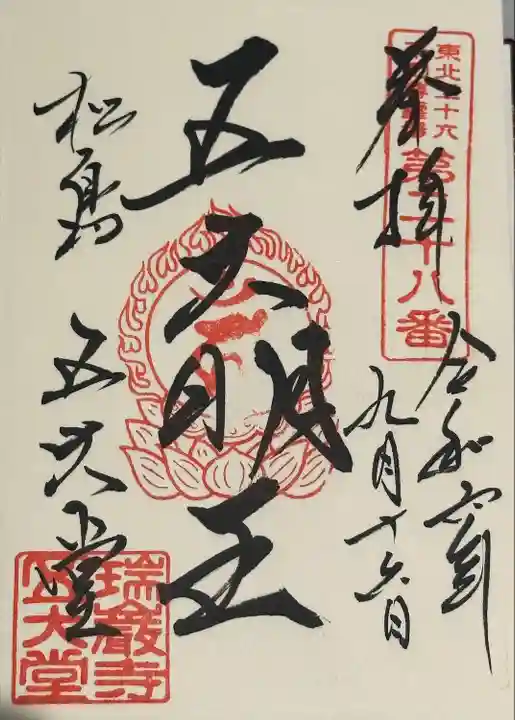 奉拝
東北三十六
不動尊霊場
第二十八番
令和六年
九月十六日
五大明王
松島 五大堂
瑞巌寺
五大堂